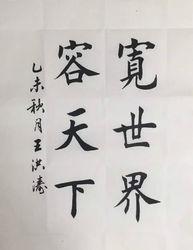 寬世界
容天下
乙未秋月王洪濤